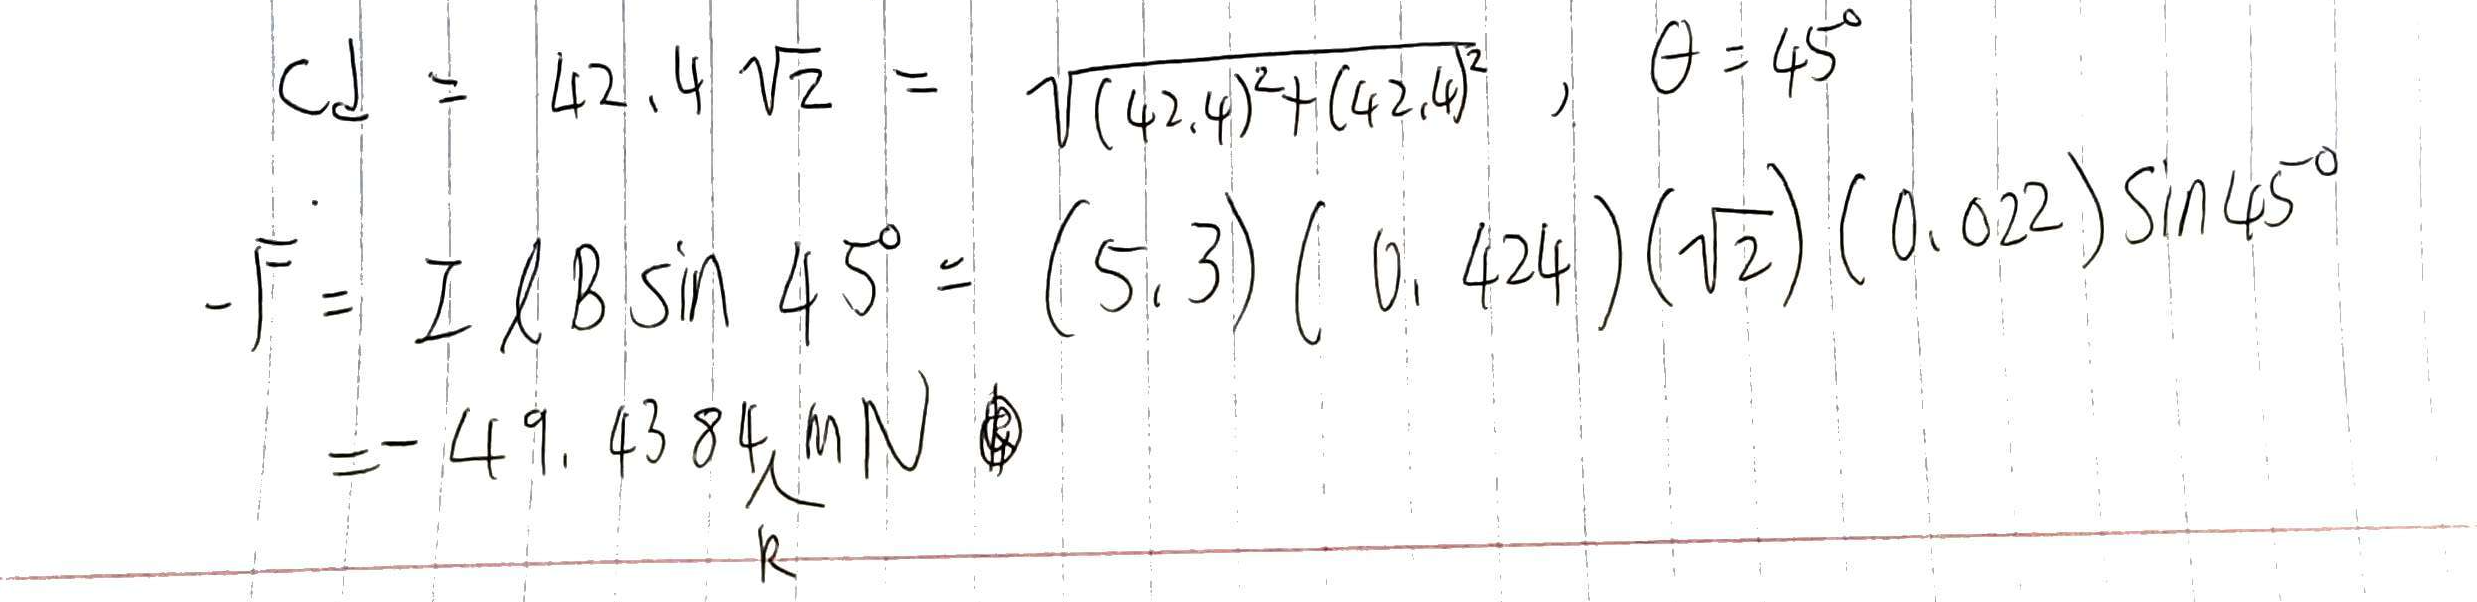 cd = 42.4 √2 = √((42.4)²+(42.4)²) , θ = 45°
-F = I ℓ B sin 45° = (5.3)(0.424)(√2)(0.022) sin 45°
= -49.4384 mN
k